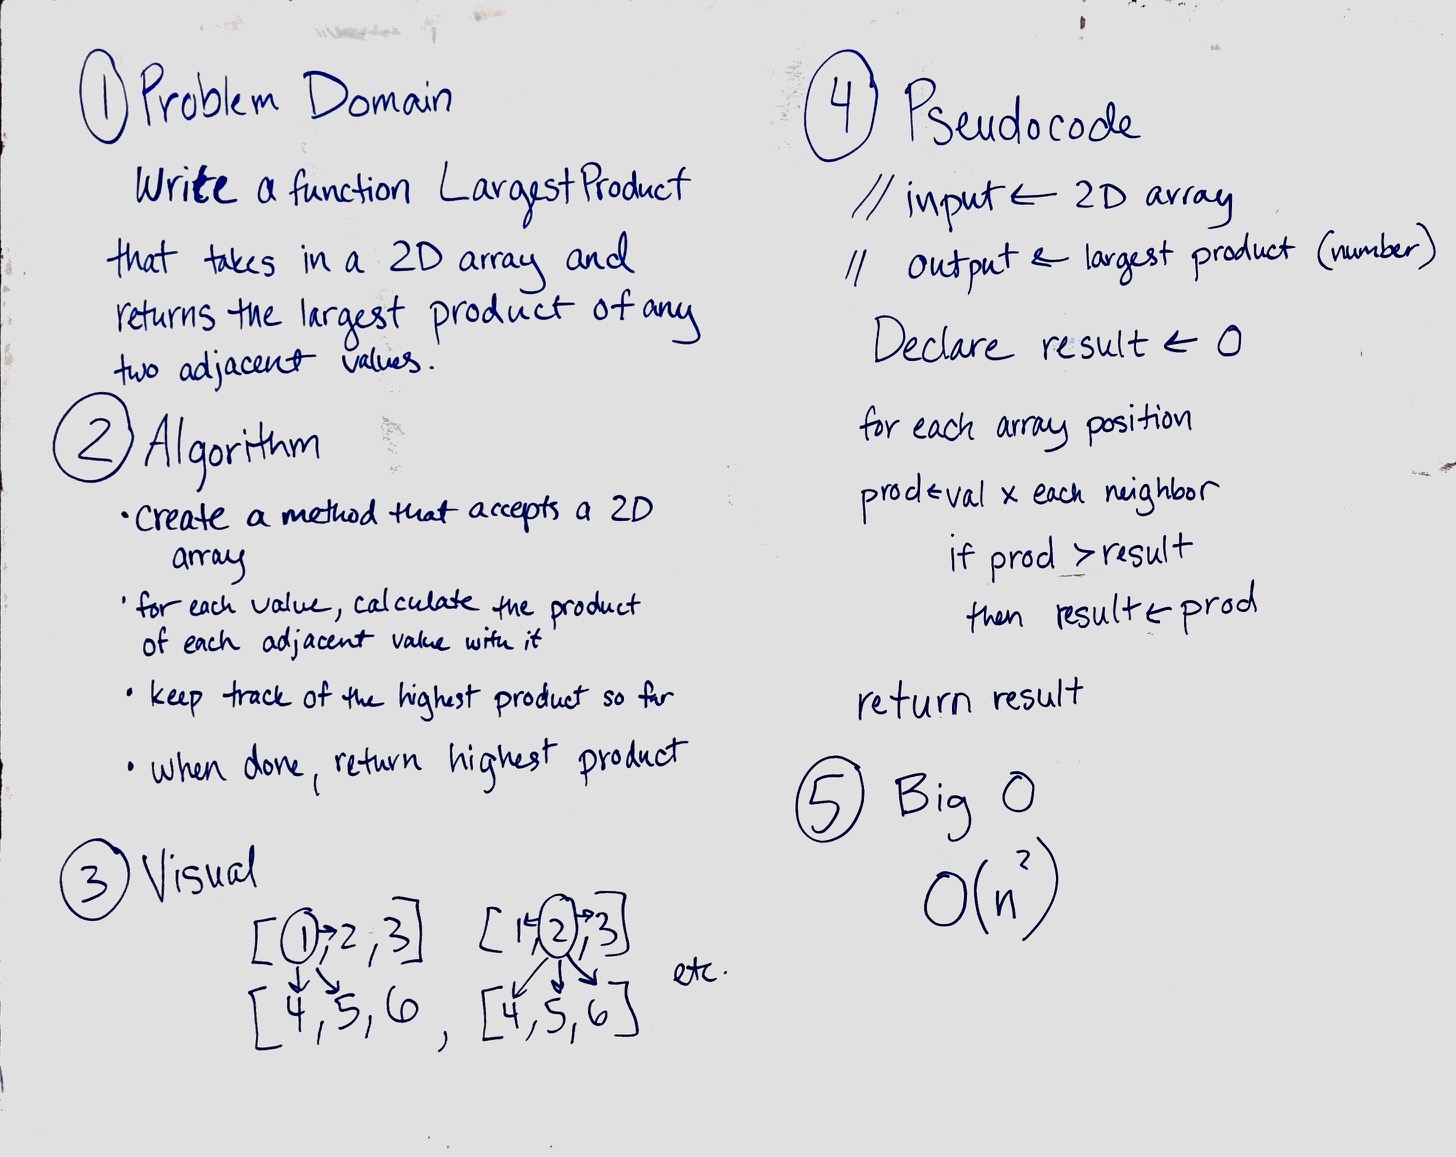 ① Problem Domain
Write a function LargestProduct
that takes in a 2D array and
returns the largest product of any
two adjacent values.
② Algorithm
• Create a method that accepts a 2D
array
• for each value, calculate the product
of each adjacent value with it
• keep track of the highest product so far
• when done, return highest product
③ Visual
[1, 2, 3] [1, 2, 3]
[4, 5, 6 , [4, 5, 6] etc.
④ Pseudocode
// input ← 2D array
// output ← largest product (number)
Declare result ← 0
for each array position
prod ← val x each neighbor
if prod > result
then result ← prod
return result
⑤ Big O
O(n²)